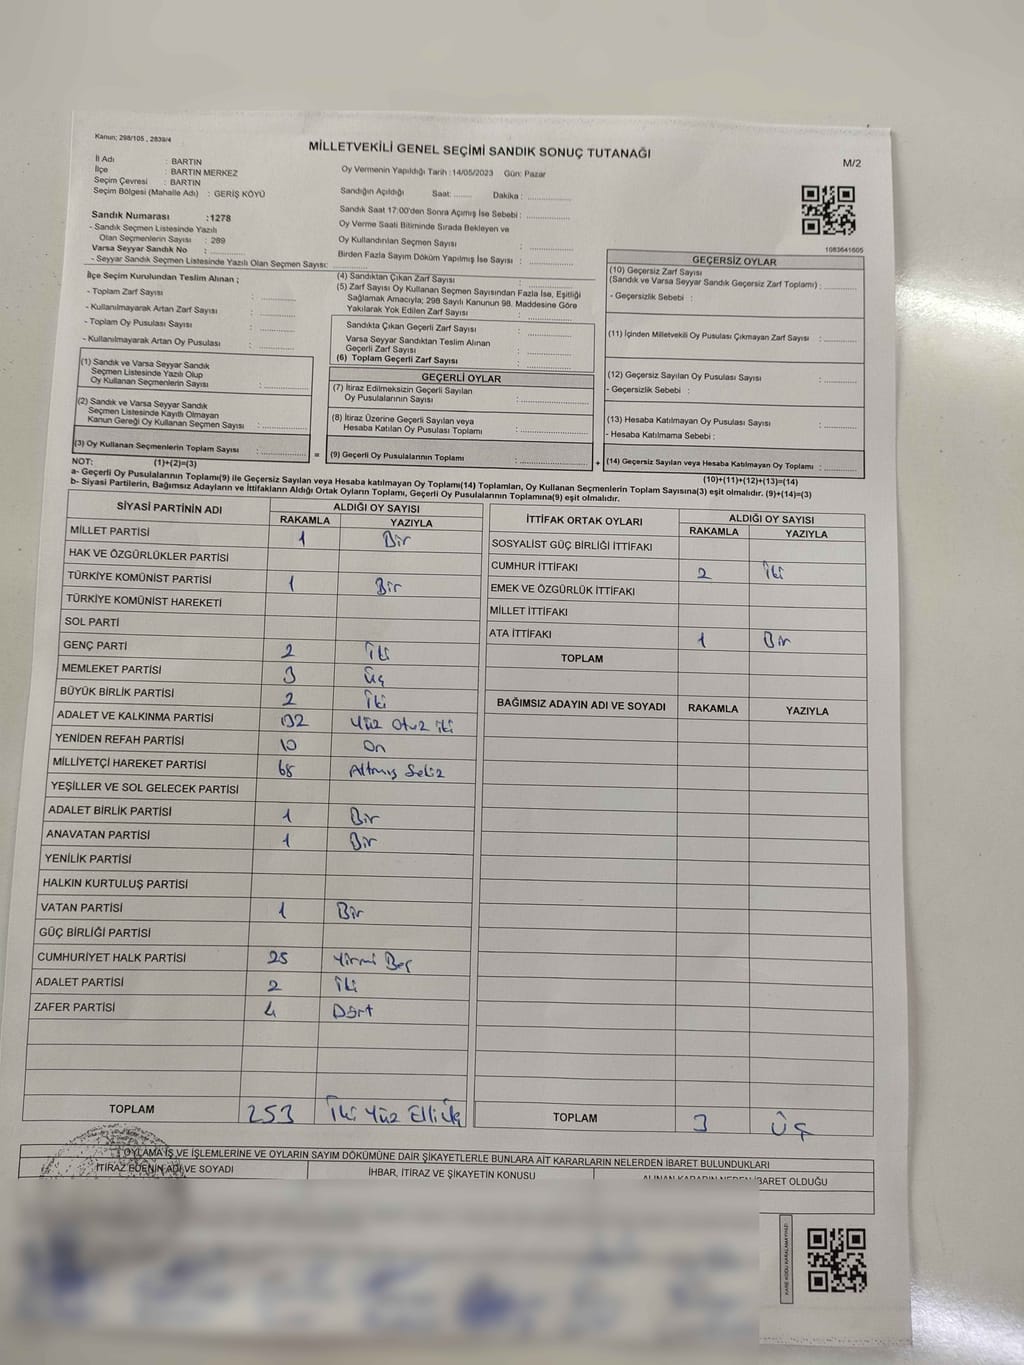 Kanun; 298/105 , 2839/4
MİLLETVEKİLİ GENEL SEÇİMİ SANDIK SONUÇ TUTANAĞI
M/2
İl Adı : BARTIN
İlçe : BARTIN MERKEZ
Seçim Çevresi : BARTIN
Seçim Bölgesi (Mahalle Adı) : GERİŞ KÖYÜ
Oy Vermenin Yapıldığı Tarih :14/05/2023 Gün: Pazar
Sandığın Açıldığı Saat: ........ Dakika : ....................
Sandık Saat 17:00'den Sonra Açımış İse Sebebi : ....................
Oy Verme Saati Bitiminde Sırada Bekleyen ve
Oy Kullandırılan Seçmen Sayısı : ....................
Birden Fazla Sayım Döküm Yapılmış İse Sayısı : ....................
Sandık Numarası :1278
- Sandık Seçmen Listesinde Yazılı
Olan Seçmenlerin Sayısı : 289
Varsa Seyyar Sandık No : ....................
- Seyyar Sandık Seçmen Listesinde Yazılı Olan Seçmen Sayısı: ..........
1083641605
İlçe Seçim Kurulundan Teslim Alınan ;
- Toplam Zarf Sayısı : ....................
- Kullanılmayarak Artan Zarf Sayısı : ....................
- Toplam Oy Pusulası Sayısı : ....................
- Kullanılmayarak Artan Oy Pusulası : ....................
(1) Sandık ve Varsa Seyyar Sandık
Seçmen Listesinde Yazılı Olup
Oy Kullanan Seçmenlerin Sayısı : ....................
(2) Sandık ve Varsa Seyyar Sandık
Seçmen Listesinde Kayıtlı Olmayan
Kanun Gereği Oy Kullanan Seçmen Sayısı : ....................
(3) Oy Kullanan Seçmenlerin Toplam Sayısı : ....................
(1)+(2)=(3)
(4) Sandıktan Çıkan Zarf Sayısı : ....................
(5) Zarf Sayısı Oy Kullanan Seçmen Sayısından Fazla İse, Eşitliği
Sağlamak Amacıyla; 298 Sayılı Kanunun 98. Maddesine Göre
Yakılarak Yok Edilen Zarf Sayısı : ....................
Sandıkta Çıkan Geçerli Zarf Sayısı : ....................
Varsa Seyyar Sandıktan Teslim Alınan
Geçerli Zarf Sayısı : ....................
(6) Toplam Geçerli Zarf Sayısı : ....................
GEÇERLİ OYLAR
(7) İtiraz Edilmeksizin Geçerli Sayılan
Oy Pusulalarının Sayısı : ....................
(8) İtiraz Üzerine Geçerli Sayılan veya
Hesaba Katılan Oy Pusulası Toplamı : ....................
= (9) Geçerli Oy Pusulalarının Toplamı : ....................
GEÇERSİZ OYLAR
(10) Geçersiz Zarf Sayısı
(Sandık ve Varsa Seyyar Sandık Geçersiz Zarf Toplamı) : ..........
- Geçersizlik Sebebi :
(11) İçinden Milletvekili Oy Pusulası Çıkmayan Zarf Sayısı : ..........
(12) Geçersiz Sayılan Oy Pusulası Sayısı : ..........
- Geçersizlik Sebebi :
(13) Hesaba Katılmayan Oy Pusulası Sayısı : ..........
- Hesaba Katılmama Sebebi :
+ (14) Geçersiz Sayılan veya Hesaba Katılmayan Oy Toplamı : ..........
(10)+(11)+(12)+(13)=(14)
NOT:
a- Geçerli Oy Pusulalarının Toplamı(9) ile Geçersiz Sayılan veya Hesaba katılmayan Oy Toplamı(14) Toplamları, Oy Kullanan Seçmenlerin Toplam Sayısına(3) eşit olmalıdır. (9)+(14)=(3)
b- Siyasi Partilerin, Bağımsız Adayların ve İttifakların Aldığı Ortak Oyların Toplamı, Geçerli Oy Pusulalarının Toplamına(9) eşit olmalıdır.
SİYASİ PARTİNİN ADI ALDIĞI OY SAYISI
RAKAMLA YAZIYLA
MİLLET PARTİSİ 1 Bir
HAK VE ÖZGÜRLÜKLER PARTİSİ
TÜRKİYE KOMÜNİST PARTİSİ 1 Bir
TÜRKİYE KOMÜNİST HAREKETİ
SOL PARTİ
GENÇ PARTİ 2 İki
MEMLEKET PARTİSİ 3 Üç
BÜYÜK BİRLİK PARTİSİ 2 İki
ADALET VE KALKINMA PARTİSİ 132 Yüz Otuz iki
YENİDEN REFAH PARTİSİ 10 On
MİLLİYETÇİ HAREKET PARTİSİ 68 Altmış Sekiz
YEŞİLLER VE SOL GELECEK PARTİSİ
ADALET BİRLİK PARTİSİ 1 Bir
ANAVATAN PARTİSİ 1 Bir
YENİLİK PARTİSİ
HALKIN KURTULUŞ PARTİSİ
VATAN PARTİSİ 1 Bir
GÜÇ BİRLİĞİ PARTİSİ
CUMHURİYET HALK PARTİSİ 25 Yirmi Beş
ADALET PARTİSİ 2 İki
ZAFER PARTİSİ 4 Dört
TOPLAM 253 İki Yüz Elli Üç
İTTİFAK ORTAK OYLARI ALDIĞI OY SAYISI
RAKAMLA YAZIYLA
SOSYALİST GÜÇ BİRLİĞİ İTTİFAKI
CUMHUR İTTİFAKI 2 İki
EMEK VE ÖZGÜRLÜK İTTİFAKI
MİLLET İTTİFAKI
ATA İTTİFAKI 1 Bir
TOPLAM
BAĞIMSIZ ADAYIN ADI VE SOYADI RAKAMLA YAZIYLA
TOPLAM 3 Üç
OYLAMA İŞ VE İŞLEMLERİNE VE OYLARIN SAYIM DÖKÜMÜNE DAİR ŞİKAYETLERLE BUNLARA AİT KARARLARIN NELERDEN İBARET BULUNDUKLARI
İTİRAZ EDENİN ADI VE SOYADI
İHBAR, İTİRAZ VE ŞİKAYETİN KONUSU
ALINAN KARARIN NEDEN İBARET OLDUĞU
KARE KODU KARALAMAYINIZ!